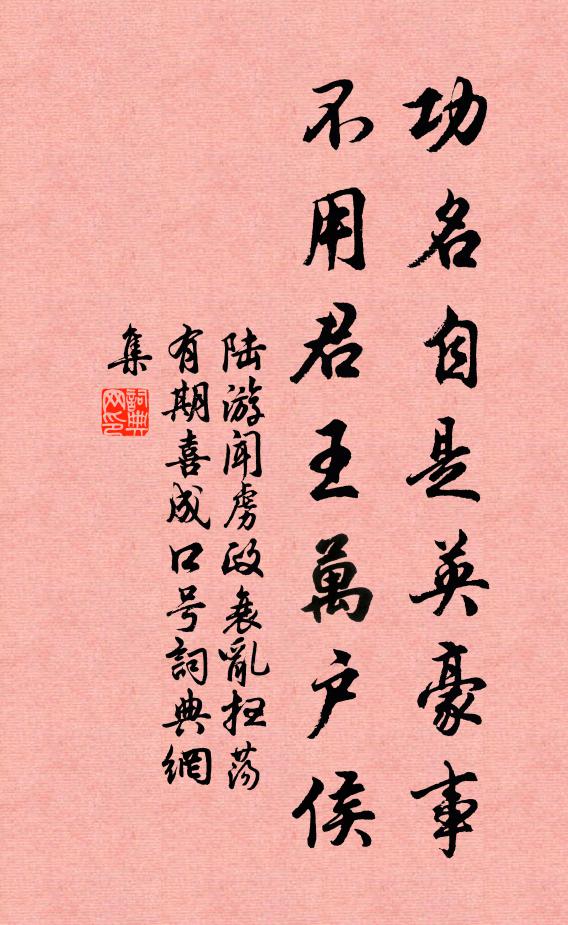 功名自是英豪事
不用君王萬户侯
陆游闻虏政衰亂扫荡
有期喜成口号詞典網
集
詞典
网印